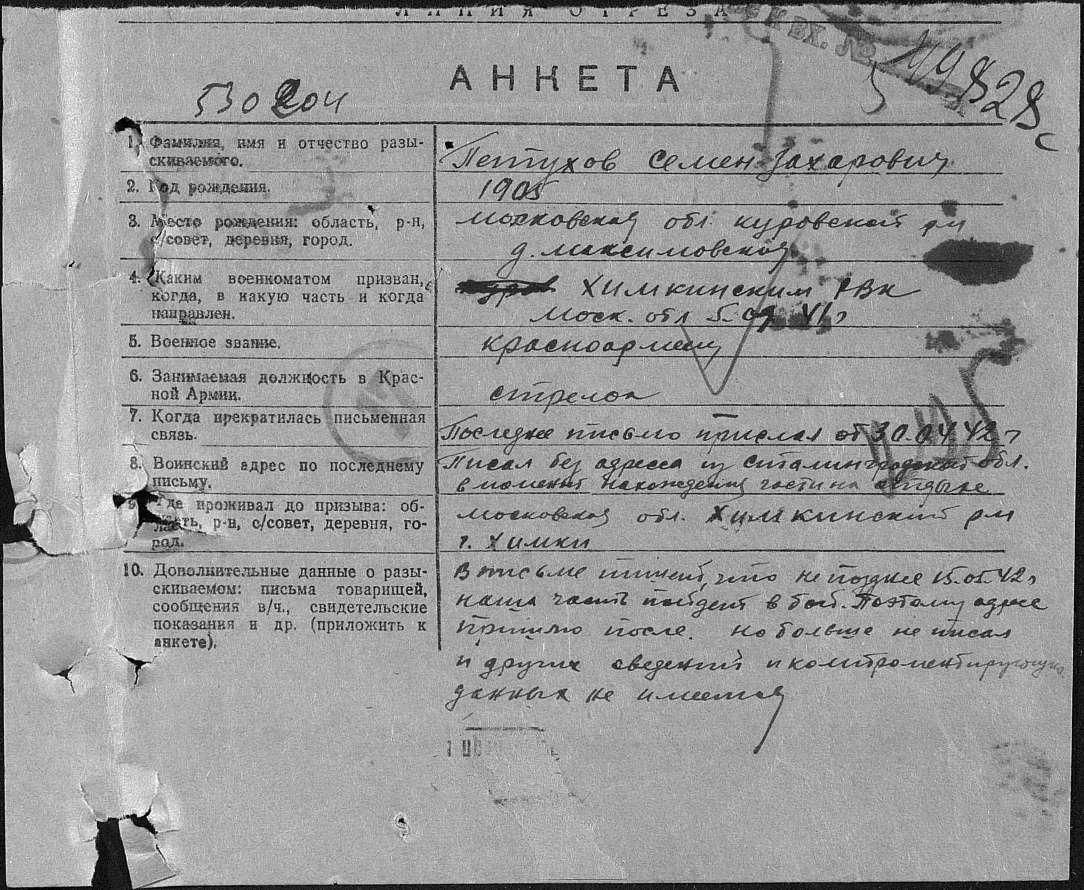 ЛИНИЯ ОТРЕЗА
ВХ. №
АНКЕТА
1. Фамилия, имя и отчество разы-
скиваемого.
Петухов Семен Захарович
2. Год рождения.
1905
3. Место рождения: область, р-н,
с/совет, деревня, город.
Московской обл. Куровской р-н
д. Максимовской
4. Каким военкоматом призван,
когда, в какую часть и когда
направлен.
Химкинским РВК
Моск. обл 5. 41г
5. Военное звание.
красноармеец
6. Занимаемая должность в Крас-
ной Армии.
стрелок
7. Когда прекратилась письменная
связь.
Последнее письмо прислал от 30.04.42г
8. Воинский адрес по последнему
письму.
Писал без адреса из Сталинградской обл.
в момент нахождения части на отдыхе
9. Где проживал до призыва: об-
ласть, р-н, с/совет, деревня, го-
род.
Московской обл. Химкинский р-н
г. Химки
10. Дополнительные данные о разы-
скиваемом: письма товарищей,
сообщения в/ч., свидетельские
показания и др. (приложить к
анкете).
В письме пишет, что не позднее 15.05.42г
наша часть пойдет в бой. Поэтому адрес
пришлю после. Но больше не писал
и других сведений и компрометирующих
данных не имеется